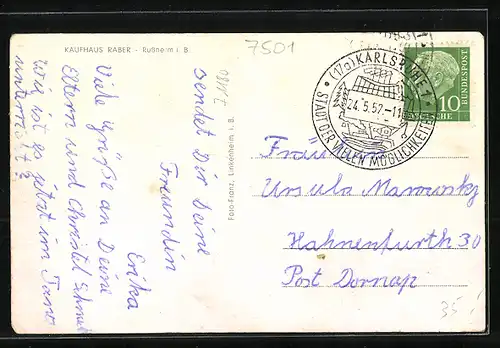 KAUFHAUS RABER - Rußheim i. B
7501
Viele Grüße an Deine
Eltern und Christel
Wie ist es jetzt im
sendet Dir Deine
Freundin
Erika
Foto-Franz, Linkenheim i. B.
(17a) KARLSRUHE 1
24.5.57.-11
STADT DER VIELEN MÖGLICHKEITEN
10
DEUTSCHE
BUNDESPOST
Fräulein
Ursula Marowsky
Hahnenfurth 30
Post Dornap
35